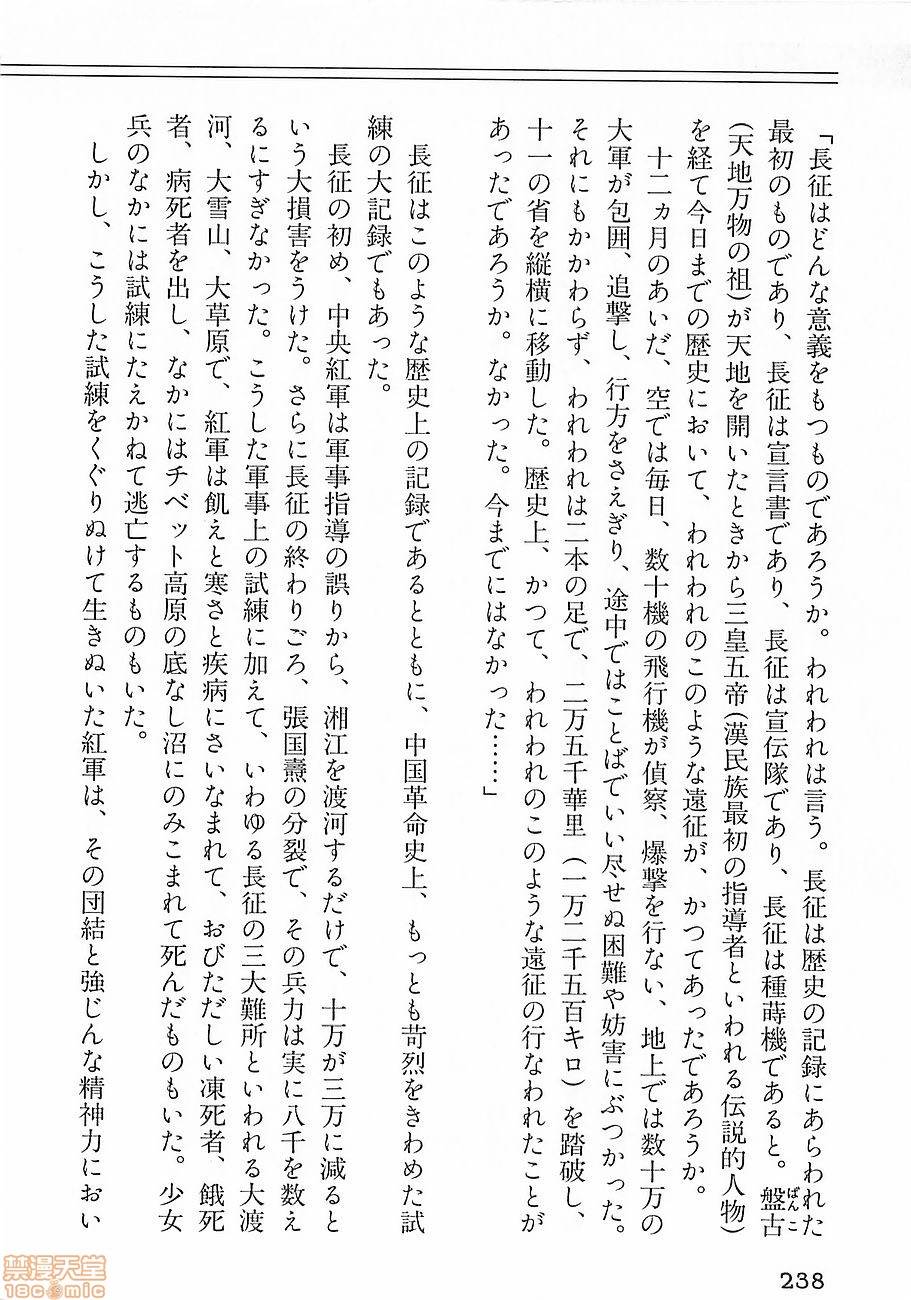 「長征はどんな意義をもつものであろうか。われわれは言う。長征は歴史の記録にあらわれた
最初のものであり、長征は宣言書であり、長征は宣伝隊であり、長征は種蒔機であると。盤古
ばんこ
(天地万物の祖)が天地を開いたときから三皇五帝(漢民族最初の指導者といわれる伝説的人物)
を経て今日までの歴史において、われわれのこのような遠征が、かつてあったであろうか。
十二ヵ月のあいだ、空では毎日、数十機の飛行機が偵察、爆撃を行ない、地上では数十万の
大軍が包囲、追撃し、行方をさえぎり、途中ではことばでいい尽せぬ困難や妨害にぶつかった。
それにもかかわらず、われわれは二本の足で、二万五千華里(一万二千五百キロ)を踏破し、
十一の省を縦横に移動した。歴史上、かつて、われわれのこのような遠征の行なわれたことが
あったであろうか。なかった。今までにはなかった……」
長征はこのような歴史上の記録であるとともに、中国革命史上、もっとも苛烈をきわめた試
練の大記録でもあった。
長征の初め、中央紅軍は軍事指導の誤りから、湘江を渡河するだけで、十万が三万に減ると
いう大損害をうけた。さらに長征の終わりごろ、張国燾の分裂で、その兵力は実に八千を数え
るにすぎなかった。こうした軍事上の試練に加えて、いわゆる長征の三大難所といわれる大渡
河、大雪山、大草原で、紅軍は飢えと寒さと疾病にさいなまれて、おびただしい凍死者、餓死
者、病死者を出し、なかにはチベット高原の底なし沼にのみこまれて死んだものもいた。少女
兵のなかには試練にたえかねて逃亡するものもいた。
しかし、こうした試練をくぐりぬけて生きぬいた紅軍は、その団結と強じんな精神力におい
238
禁漫天堂
18comic